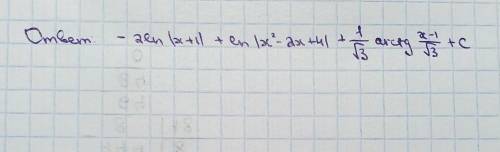 Ответ. - 2ln|x+1| + ln|x²-2x+4| + 1/√3 arctg (x-1)/√3 + C